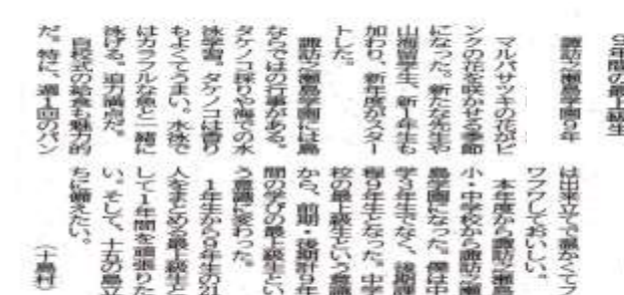 9年間の最上級生
諏訪之瀬島学園9年
マルバサツキの花がピ
ンクの花を咲かせる季節
になった。新たな先生や
山海留学生、新1年生も
加わり、新年度がスター
トした。
諏訪之瀬島学園には島
ならではの行事がある。
タケノコ採りや海での水
泳学習。タケノコは香り
もよくてうまい。水泳で
はカラフルな魚と一緒に
泳げる。迫力満点だ。
自校式の給食も魅力的
だ。特に、週1回のパン
は出来立てで温かくてフ
ワフワしておいしい。
本年度から諏訪之瀬島
小・中学校から諏訪之瀬
島学園になった。僕は中
学3年生でなく、後期課
程9年生となった。中学
校の最上級生という意識
から、前期・後期計9年
間の学びの最上級生とい
う意識に変わった。
1年生から9年生の21
人をまとめる最上級生と
して1年間を頑張りた
い。そして、十五の島立
ちに備えたい。
(十島村)